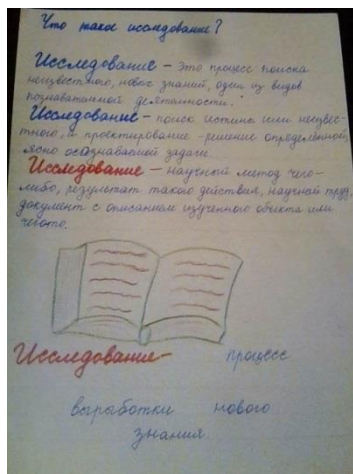 Что такое исследование?
Исследование – это процесс поиска
неизвестного, новых знаний, один из видов
познавательной деятельности.
Исследование – поиск истины или неизвес-
тного, а проектирование – решение определённой,
ясно осознаваемой задачи.
Исследование – научный метод чего-
либо, результат такого действия, научный труд,
документ с описанием изученного объекта или
чегото.
Исследование – процесс
выработки нового
знания.